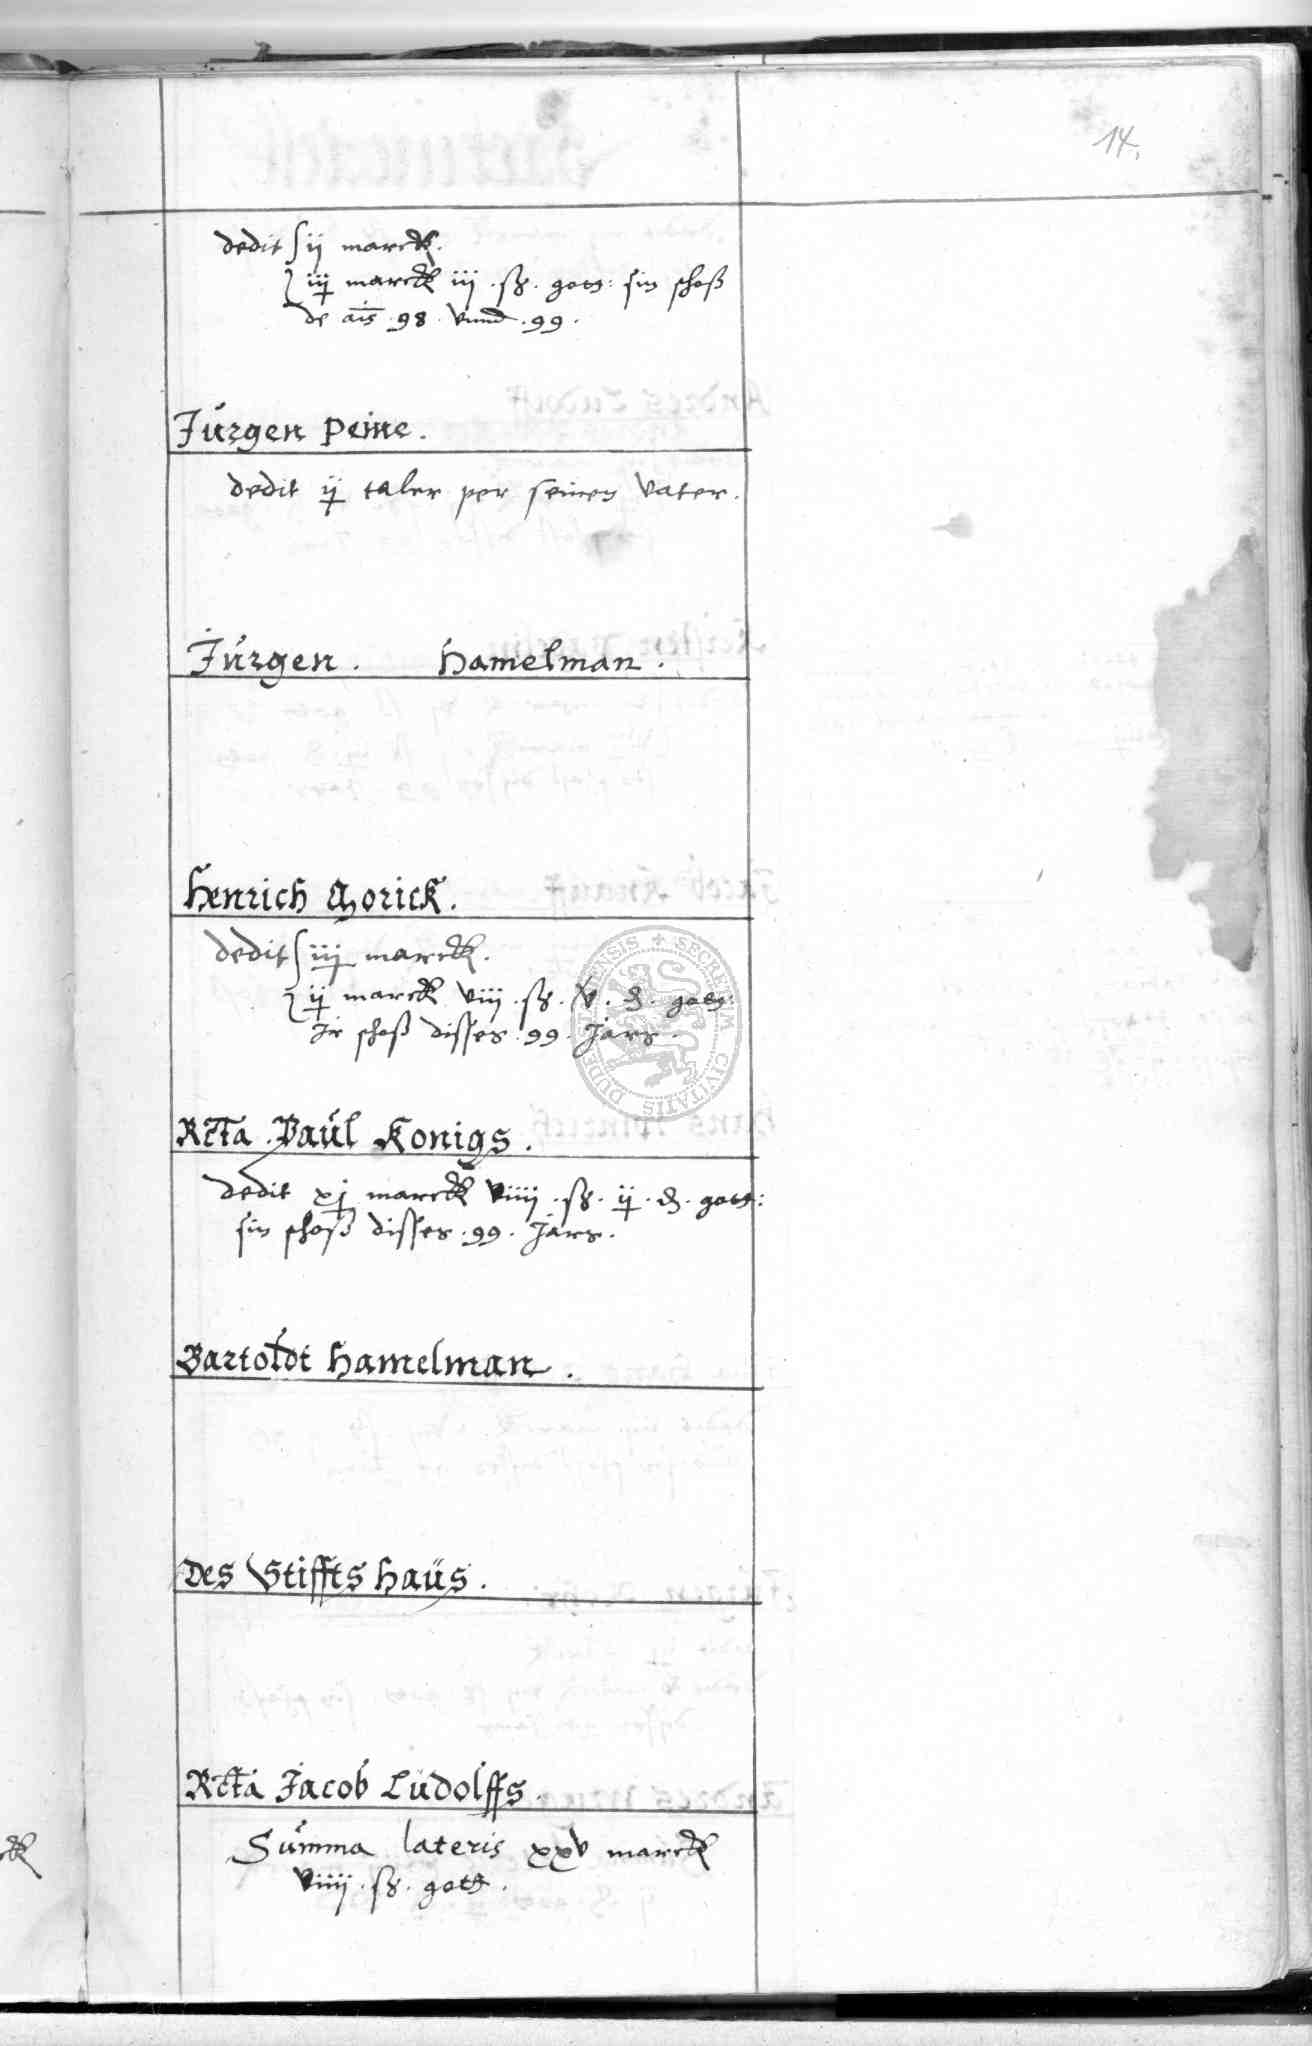 14.
dedit ij marck.
iij marck iij ß. gots: sin schoß
de ais 98 vnnd 99.
Jürgen Peine.
dedit ij taler per seinen Vater.
Jürgen. Hamelman.
Henrich Gorick.
dedit iiij marck.
ij marck viii ß. v. d. gots:
Ir schoß disses 99. Jars.
Rcta. Paül Konigs.
dedit xj marck viiij ß. ij. d. gots:
sin schoß disses 99. Jars.
Bartoldt Hamelman.
Des Stiffts Haüs.
Rcta Jacob Lüdolffs.
Summa lateris xxv marck
viiij ß. gots.
SECRETUM CIVITATIS